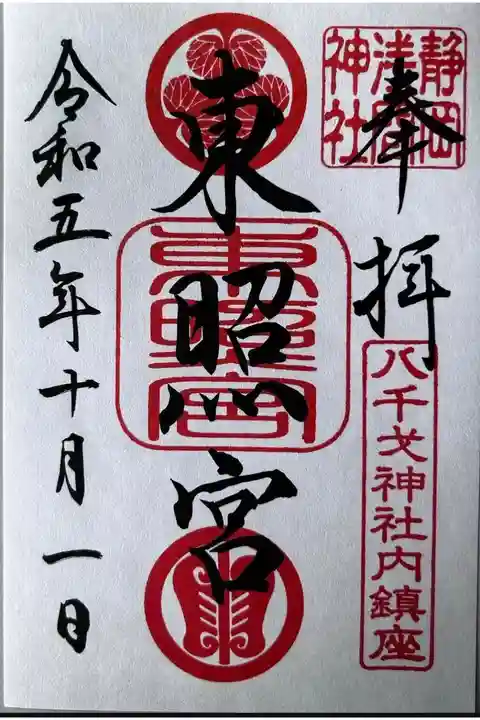 奉拝
静岡
浅間
神社
八千戈神社内鎮座
東照宮
東照宮
令和五年十月一日